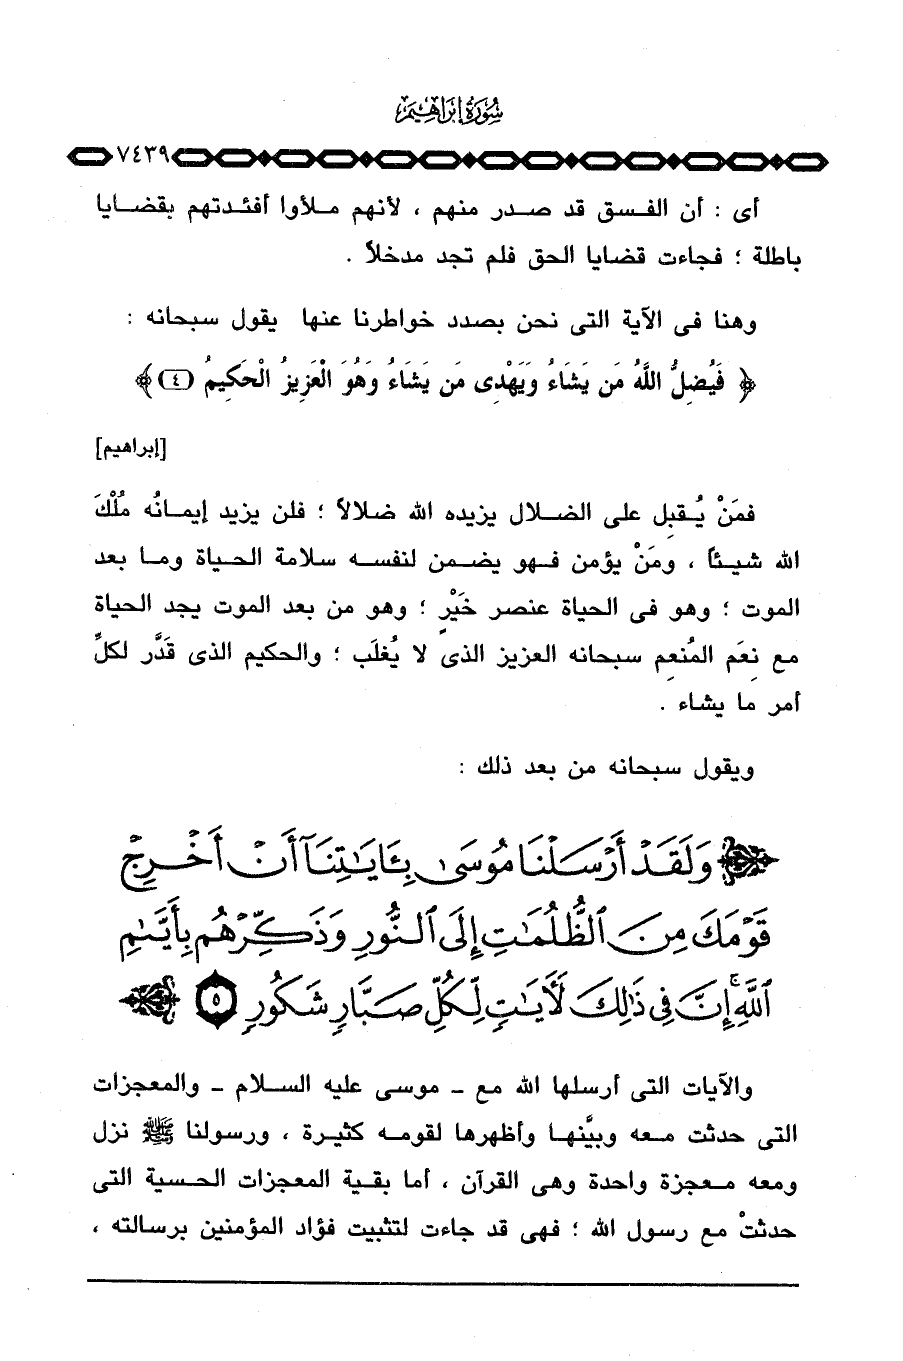 سُورَةُ إِبْرَاهِيمَ
٧٤٣٩
أى : أن الفسق قد صدر منهم ، لأنهم ملأوا أفئدتهم بقضايا
باطلة ؛ فجاءت قضايا الحق فلم تجد مدخلاً .
وهنا فى الآية التى نحن بصدد خواطرنا عنها يقول سبحانه :
﴿ فَيُضِلُّ اللَّهُ مَن يَشَاءُ وَيَهْدِى مَن يَشَاءُ وَهُوَ الْعَزِيزُ الْحَكِيمُ (٤) ﴾
[إبراهيم]
فمَنْ يُقبِل على الضلال يزيده الله ضلالاً ؛ فلن يزيد إيمانُه مُلْكَ
الله شيئاً ، ومَنْ يؤمن فهو يضمن لنفسه سلامة الحياة وما بعد
الموت ؛ وهو فى الحياة عنصر خَيْرٍ ؛ وهو من بعد الموت يجد الحياة
مع نِعَم المُنعِم سبحانه العزيز الذى لا يُغلَب ؛ والحكيم الذى قَدَّر لكلِّ
أمر ما يشاء .
ويقول سبحانه من بعد ذلك :
وَلَقَدْ أَرْسَلْنَا مُوسَىٰ بِـَٔايَـٰتِنَآ أَنْ أَخْرِجْ
قَوْمَكَ مِنَ ٱلظُّلُمَـٰتِ إِلَى ٱلنُّورِ وَذَكِّرْهُم بِأَيَّىٰمِ
ٱللَّهِ ۚ إِنَّ فِى ذَٰلِكَ لَأَيَـٰتٍ لِّكُلِّ صَبَّارٍ شَكُورٍ ٥
والآيات التى أرسلها الله مع - موسى عليه السلام - والمعجزات
التى حدثت معه وبيَّنها وأظهرها لقومه كثيرة ، ورسولنا ﷺ نزل
ومعه معجزة واحدة وهى القرآن ، أما بقية المعجزات الحسية التى
حدثتْ مع رسول الله ؛ فهى قد جاءت لتثبيت فؤاد المؤمنين برسالته ،